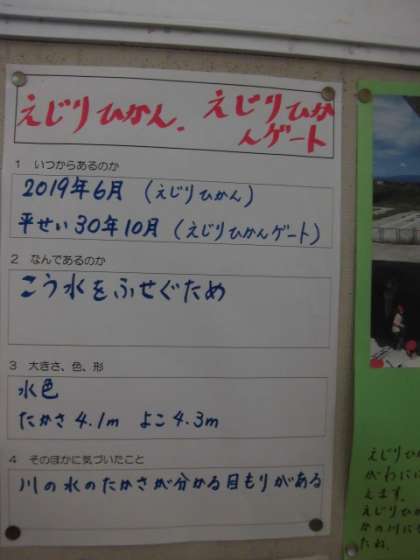 えじりひかん. えじりひか
んゲート
1 いつからあるのか
2019年6月 (えじりひかん)
平せい30年10月 (えじりひかんゲート)
2 なんであるのか
こう水をふせぐため
3 大きさ、色、形
水色
たかさ4.1m よこ4.3m
4 そのほかに気づいたこと
川の水のたかさが分かる目もりがある
えじりひ
がわに
えます。
えじりひか
かの川に
たね.